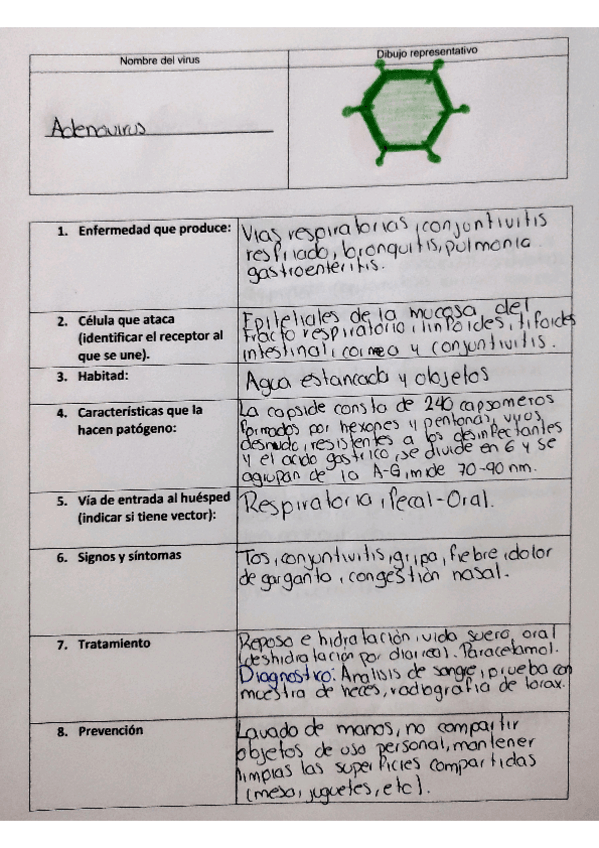 Nombre del virus
Dibujo representativo
Adenovirus
1. Enfermedad que produce:
Vias respiratorias, conjuntivitis
resfriado, bronquitis, pulmonia
gastroenteritis.
2. Célula que ataca
(identificar el receptor al
que se une).
Epiteliales de la mucosa del
tracto respiratorio, linfoides, tifoides
intestinal, cornea y conjuntivitis.
3. Habitad:
Agua estancada y objetos
4. Características que la
hacen patógeno:
La capside consta de 240 capsomeros
formados por hexones y pentonas, virus
desnudo, resistentes a los desinfectantes
y el acido gastrico, se divide en 6 y se
agrupan de la A-G, mide 70-90 nm.
5. Vía de entrada al huésped
(indicar si tiene vector):
Respiratoria, Fecal-Oral.
6. Signos y síntomas
Tos, conjuntivitis, gripa, fiebre, dolor
de garganta, congestión nasal.
7. Tratamiento
Reposo e hidratación, vida suero oral
(deshidratación por diarrea). Paracetamol.
Diagnostico: Analisis de sangre, prueba con
muestra de heces, radiografia de torax.
8. Prevención
Lavado de manos, no compartir
objetos de uso personal, mantener
limpias las superficies compartidas
(mesa, juguetes, etc).